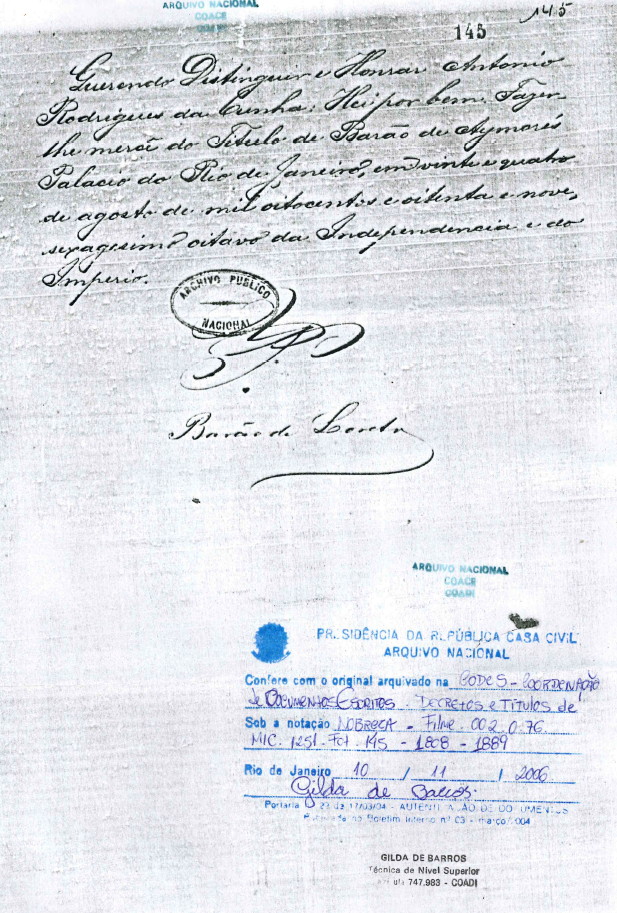 ARQUIVO NACIONAL
COACE
COADI
145
145
Querendo Distinguir e Honrar Antonio
Rodrigues da Cunha: Hei por bem Fazer-
lhe mercê do Titulo de Barão de Aymorés
Palacio do Rio de Janeiro, em vinte e quatro
de agosto de mil oitocentos e oitenta e nove,
sexagesimo oitavo da Independencia e do
Imperio.
ARCHIVO PUBLICO
NACIONAL
Barão de Loreto
ARQUIVO NACIONAL
COACE
COADI
PRESIDÊNCIA DA REPÚBLICA CASA CIVIL
ARQUIVO NACIONAL
Confere com o original arquivado na CODES - COORDENAÇÃO
de DOCUMENTOS ESCRITOS. DECRETOS e TÍTULOS de
Sob a notação NOBREZA - Filme. 002.0.76.
MIC. 1251. Fot. 145 - 1808 - 1889
Rio de Janeiro 10 / 11 / 2006
Gilda de Barros.
Portaria 22 de 17/03/04 - AUTENTICAÇÃO DE DOCUMENTOS
Publicada no Boletim Interno nº 03 - março/2004
GILDA DE BARROS
Técnica de Nível Superior
747.983 - COADI